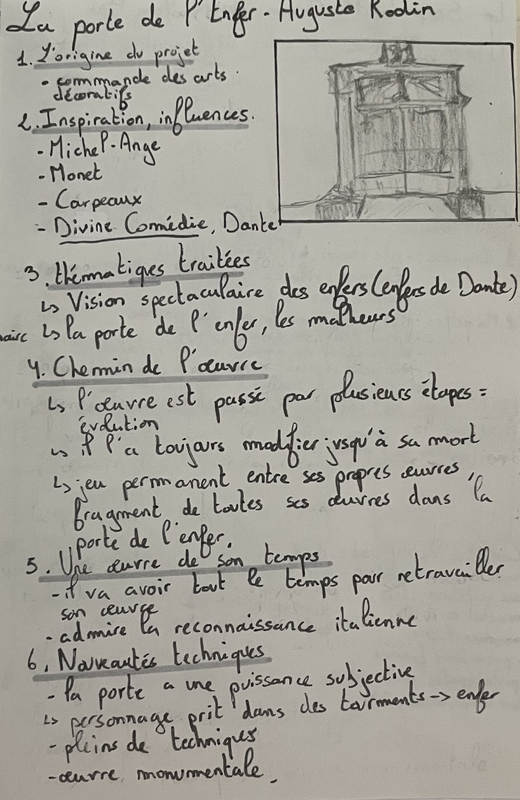 La porte de l'Enfer - Auguste Rodin
1. L'origine du projet
- commande des arts
décoratifs
2. Inspiration, influences.
- Michel-Ange
- Monet
- Carpeaux
- Divine Comédie, Dante
3. thématiques traitées
↳ Vision spectaculaire des enfers (enfers de Dante)
↳ la porte de l'enfer, les malheurs
4. Chemin de l'œuvre
↳ l'œuvre est passé par plusieurs étapes =
évolution
↳ il l'a toujours modifier jusqu'à sa mort
↳ jeu permanent entre ses propres œuvres,
fragment de toutes ses œuvres dans la
porte de l'enfer.
5. Une œuvre de son temps
- il va avoir tout le temps pour retravailler
son œuvre
- admire la reconnaissance italienne
6. Nouveautés techniques
- la porte a une puissance subjective
↳ personnage prit dans des tourments → enfer
- pleins de techniques
- œuvre monumentale.